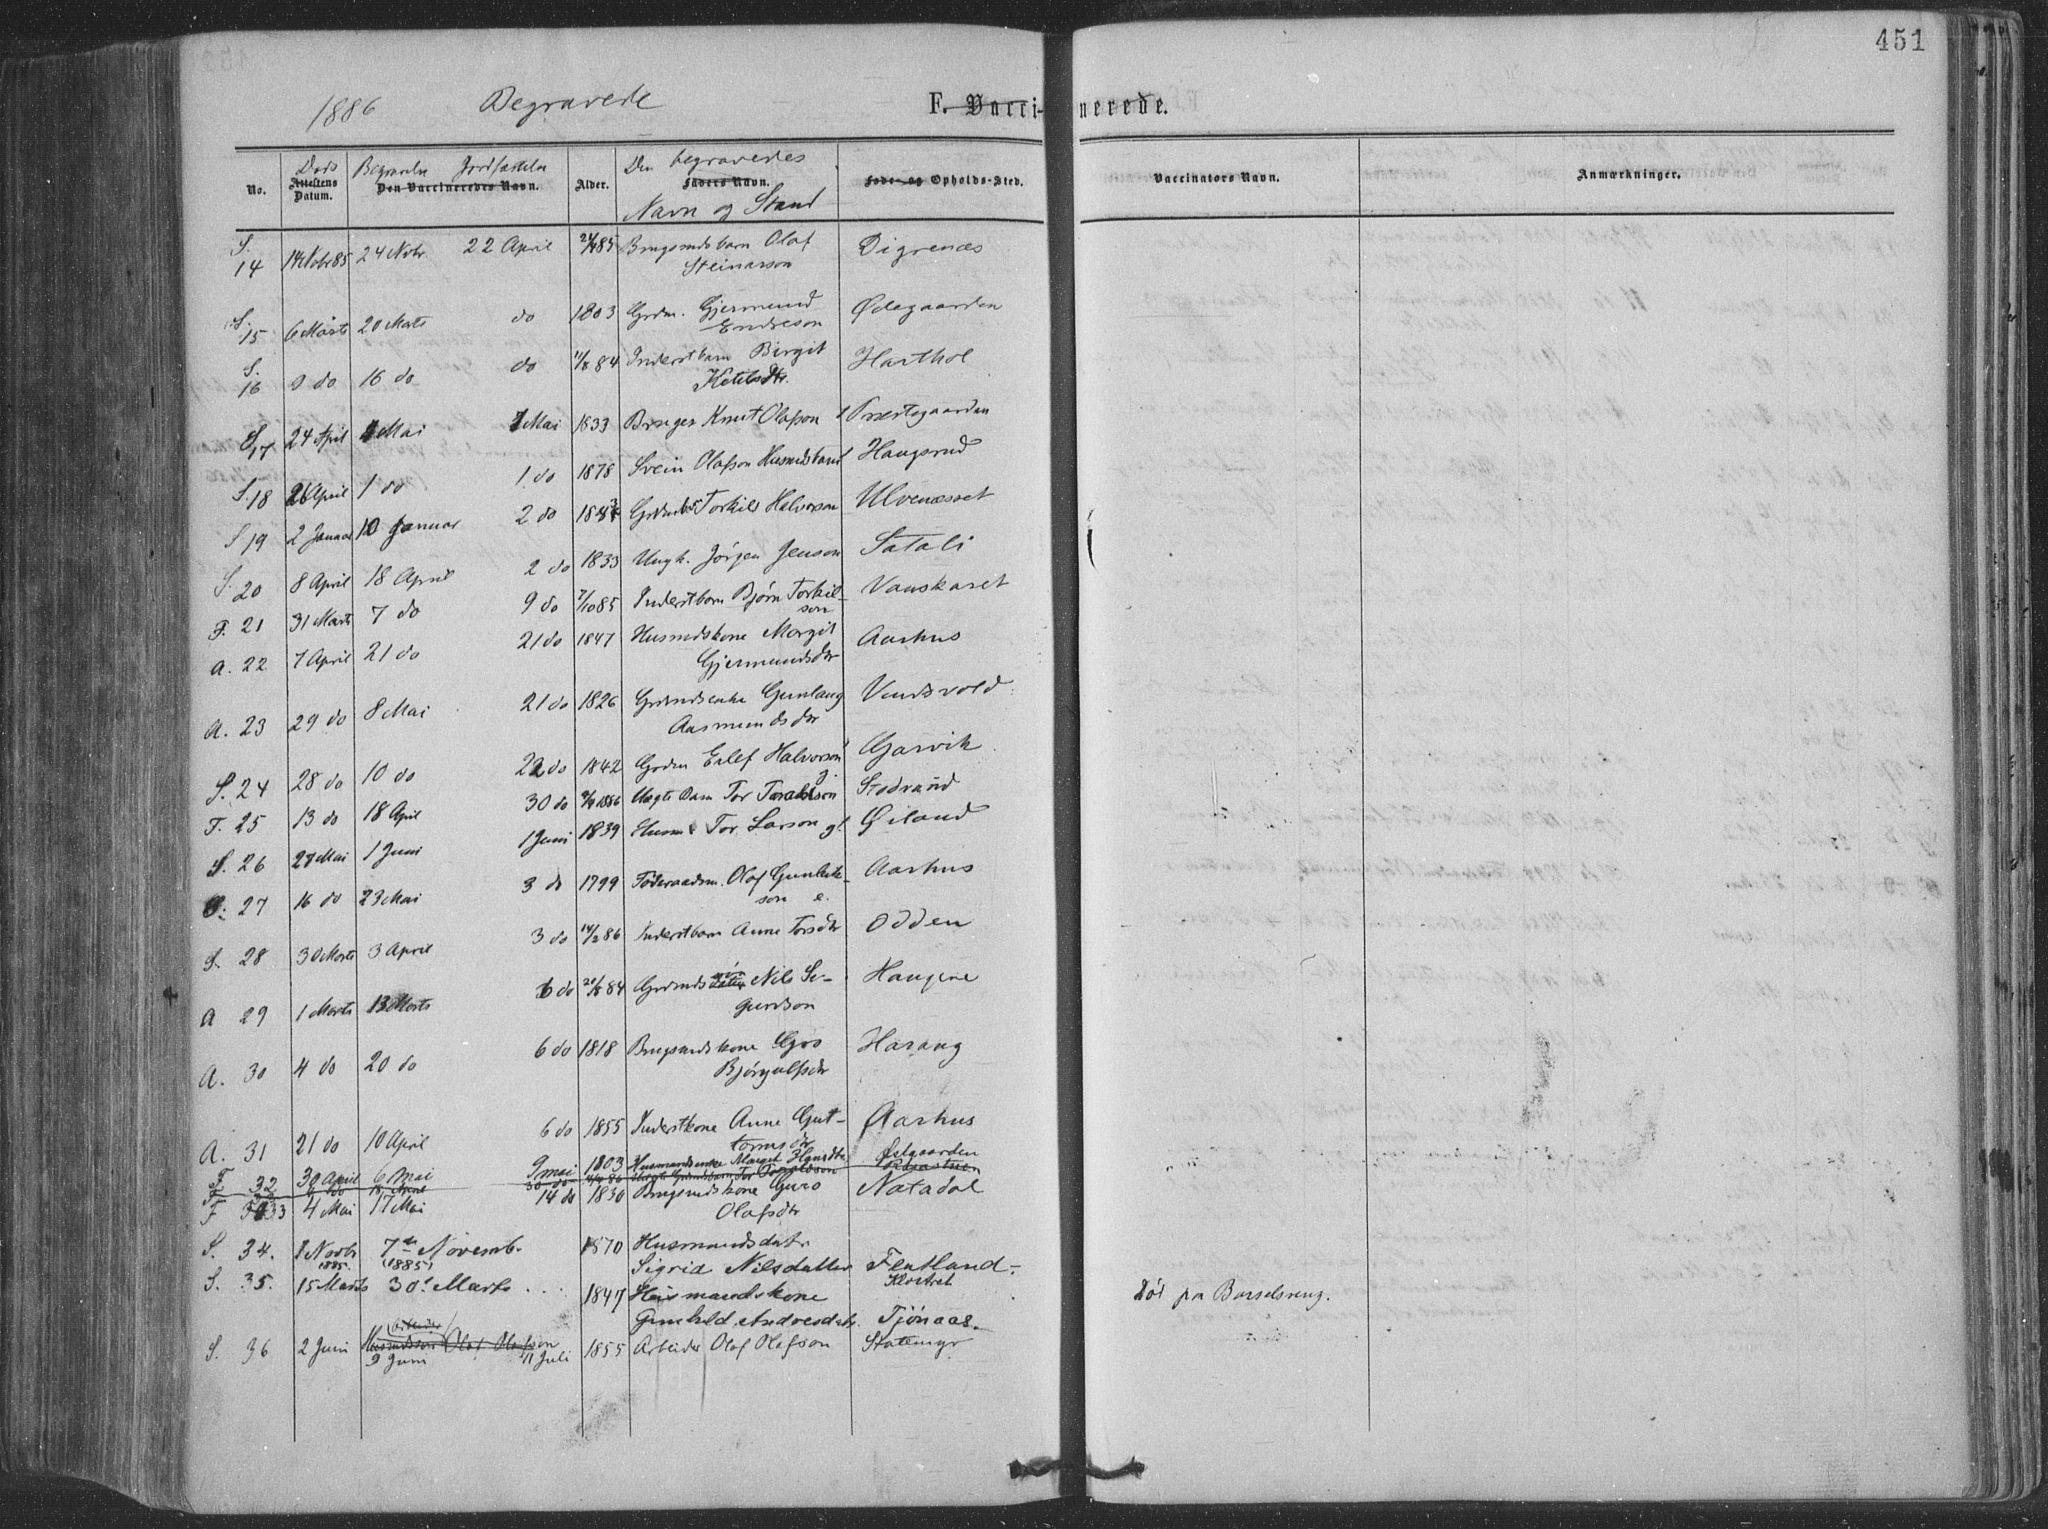 451
1886 Begravede F. Vaccinerede.
No. Døds Attestens Datum. Begravelse Jordfæstelse Den Vaccineredes Navn. Alder. Den begravedes Faders Navn. Navn og Stand Føde- og Opholds-Sted. Vaccinators Navn. Anmærkninger.
S. 14 Nobr 85 24 Nobr. 22 April 85 Brugmdsbarn Olaf Digrenæs
Steinarson
S. 15 6 Marts 20 Marts do 1803 Grdm. Gjermund Ødegaarden
Endreson
S. 16 9 do 16 do do 11/8 84 Inderstbarn Birgit Harthol
Ketilsdtr.
S. 17 24 April 1 Mai 1 Mai 1833 Bruger Knut Olafson Præstegaarden
S. 18 26 April 1 do 1 do 1878 Svein Olafson Husmdsbarn Haugsrud
S 19 2 Januar 10 Januar 2 do Torkils Halvorson Ulvenæsset
S. 20 8 April 18 April 2 do 1833 Ungk. Jørgen Jenson Satali
F. 21 31 Marts 7 do 9 do 7/10 85 Inderstbarn Bjørn Torkil- Vauskaret
son
A. 22 7 April 21 do 21 do 1847 Husmdskone Margit Aarhus
Gjermundsdtr
A. 23 29 do 8 Mai 21 do 1826 Grdmdsenke Gunlaug Vindsvold
Aasmundsdtr
S. 24 28 do 10 do 22 do 1842 Grdm Eilef Halvorson Garvik
F. 25 13 do 18 April 30 do 1886 Uægte Barn Tor Toraldson Stodrund
S. 26 27 Mai 1 Juni 1 Juni 1839 Husm Tor Larson Øiland
27 16 do 23 Mai 3 do 1799 Føderaadsm. Olaf Gunleik- Aarhus
son
S. 28 30 Marts 3 April 3 do 14/2 86 Inderstbarn Anne Torsdtr Odden
A 29 1 Marts 13 Marts 6 do 84 Grdmds Nils Si- Haugene
gurdson
A. 30 4 do 20 do 6 do 1818 Brugmdskone Gro Harang
Bjørgulfsdtr
A. 31 21 do 10 April 6 do 1855 Inderstkone Anne Gut- Aarhus
tormsdtr
F 32 30 April 6 Mai 9 mai 1803 Husmandsenke Margit Hansdtr Østgaarden
F 33 4 Mai 17 Mai 14 do 1830 Brugmdskone Guro Natadal
Olafsdtr
S. 34. 1 Novbr 1885. 7de Novemb. (1885) 1870 Husmandsdatr.
Sigrid Nilsdatter Flatland-
Klostret
S. 35. 15 Marts 30. Marts . . . 1847 Husmandskone
Gunhild Andresdatr. Tjönaas.
Död paa Barselseng.
S. 36 2 Juni 9 Juni 11 Juli 1855 Arbeider Olaf Olafson Statemyr